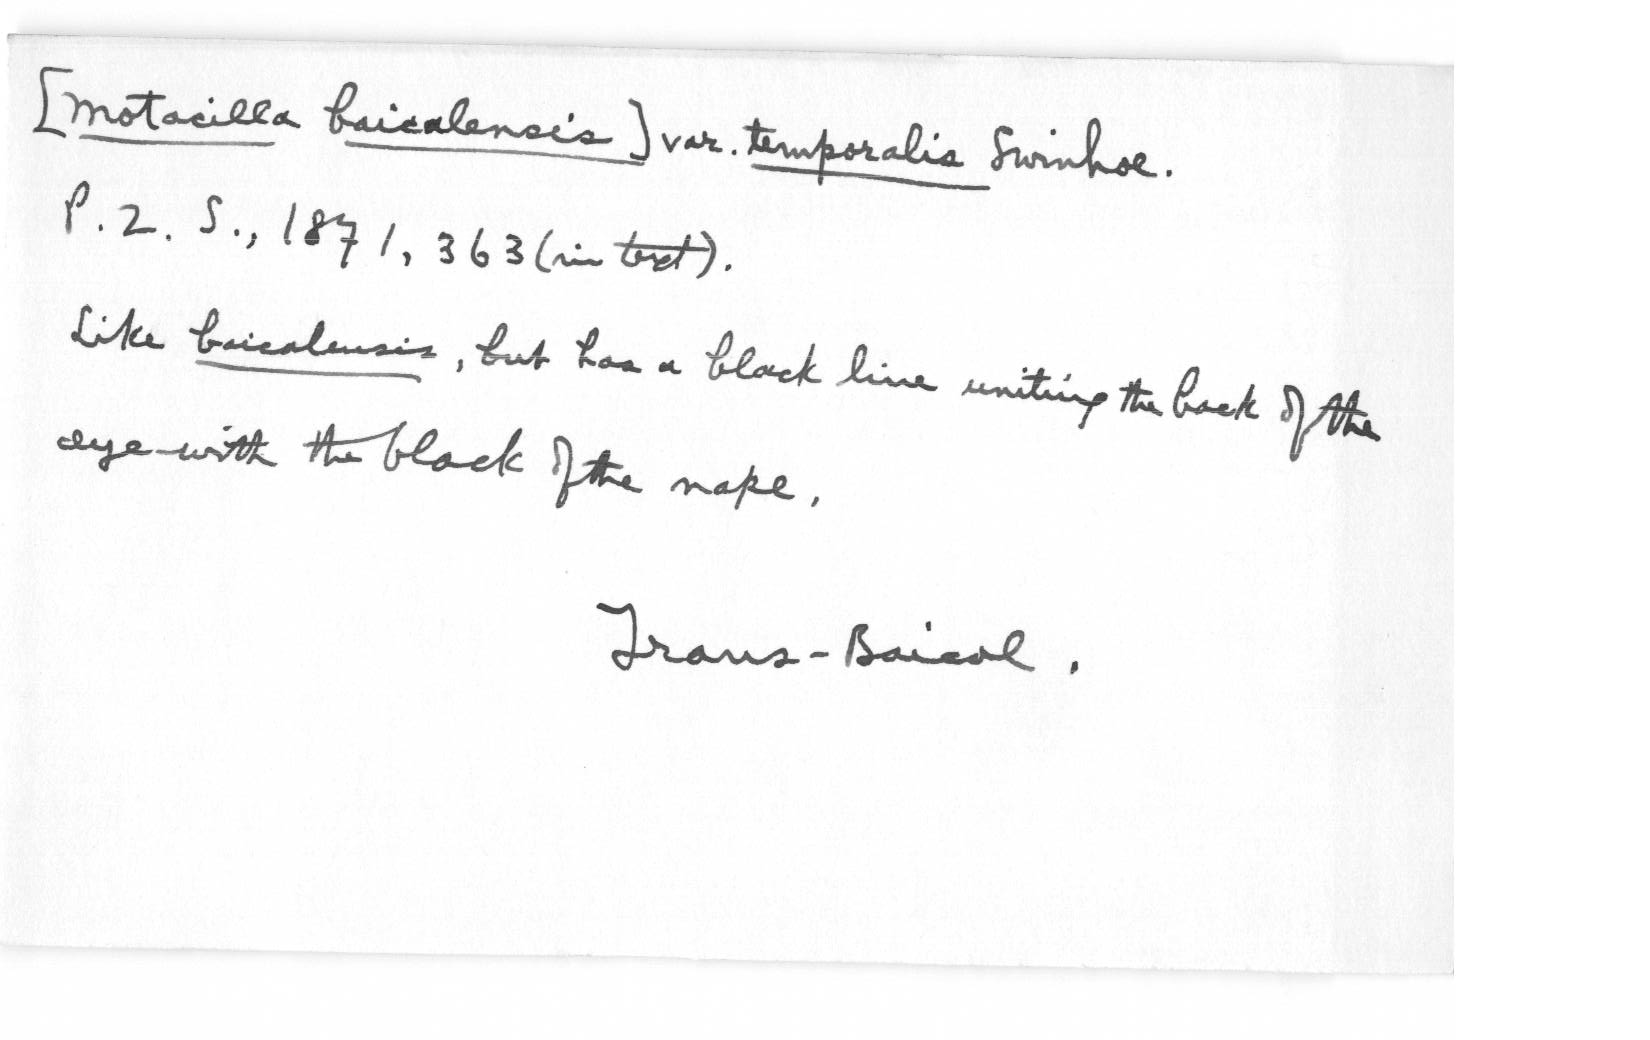 [Motacilla baicalensis] var. temporalis Swinhoe.
P. Z. S., 1871, 363 (in text).
Like baicalensis, but has a black line uniting the back of the
eye with the black of the nape.
Trans-Baical.